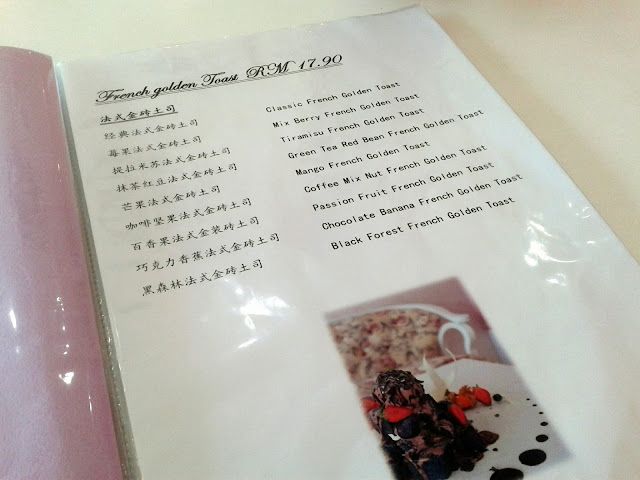 French golden Toast RM 17.90
法式金砖土司
经典法式金砖土司 Classic French Golden Toast
莓果法式金砖土司 Mix Berry French Golden Toast
提拉米苏法式金砖土司 Tiramisu French Golden Toast
抹茶红豆法式金砖土司 Green Tea Red Bean French Golden Toast
芒果法式金砖土司 Mango French Golden Toast
咖啡坚果法式金砖土司 Coffee Mix Nut French Golden Toast
百香果法式金装砖土司 Passion Fruit French Golden Toast
巧克力香蕉法式金砖土司 Chocolate Banana French Golden Toast
黑森林法式金砖土司 Black Forest French Golden Toast